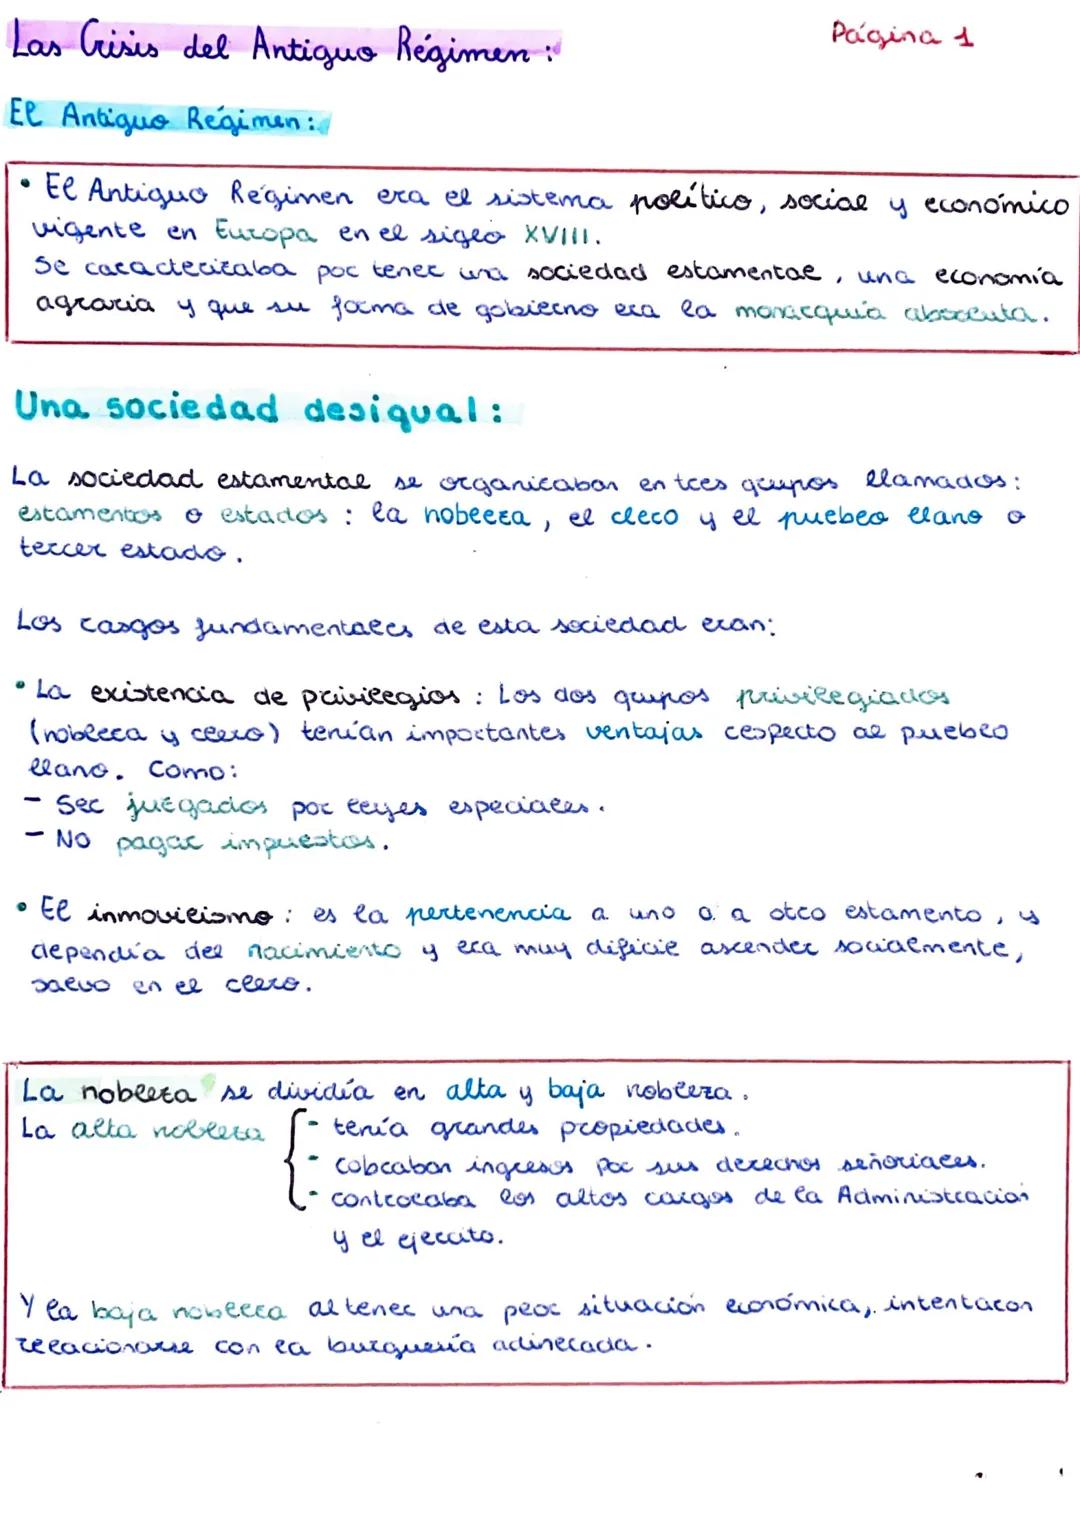 Las Crisis del Antiguo Régimen:
Página 1
El Antiguo Régimen:
• El Antiguo Régimen era el sistema político, social y económico
vigente en Europa en el siglo XVIII.
Se caracterizaba por tener una sociedad estamental, una economía
agraria y que su forma de gobierno era la monarquía absoluta.
Una sociedad desigual:
La sociedad estamental se organizaban en tres grupos llamados:
estamentos o estados: la nobleza, el clero y el pueblo llano o
tercer estado.
Los rasgos fundamentales de esta sociedad eran:
• La existencia de privilegios: Los dos grupos privilegiados
(nobleza y clero) tenían importantes ventajas respecto al pueblo
llano. Como:
- Ser juzgados por leyes especiales.
- No pagar impuestos.
• El inmovilismo: es la pertenencia a uno o a otro estamento, y
dependía del nacimiento y era muy dificil ascender socialmente,
salvo en el clero.
La nobleza se dividía en alta y baja nobleza.
La alta nobleza
- tenía grandes propiedades.
- cobraban ingresos por sus derechos señoriales.
- controlaba los altos cargos de la Administración
y el ejercito.
Y la baja nobleza al tener una peor situación económica, intentaron
relacionarse con la burguería adinerada.